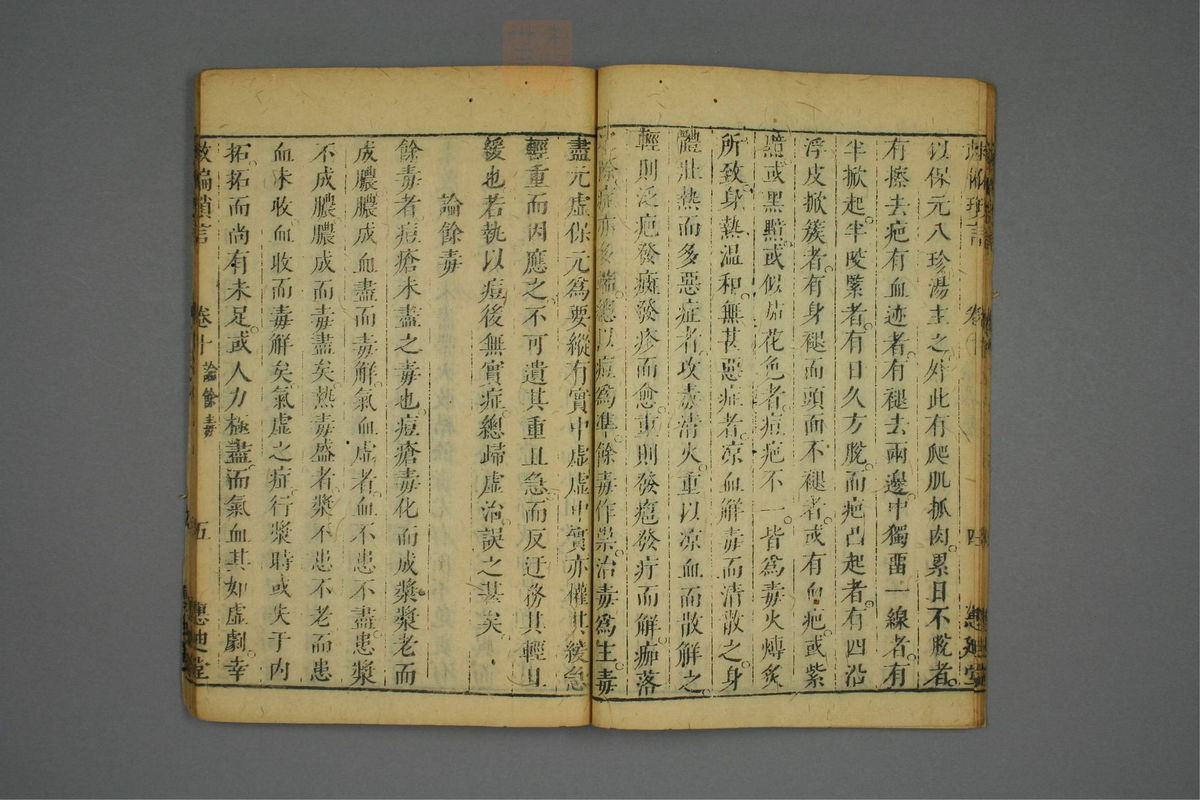 以保元八珍湯主之外此有爬肌抓肉累日不脫者
有擦去疤有血迹者有褪去兩邊中獨畱一線者有
半掀起半咬緊者有日久方脫而疤凸起者有四沿
浮皮掀簇者有身褪而頭面不褪者或有血疤或紫
黯或黑黯或似茄花色者痘疤不一皆爲毒火煿炙
所致身熱温和無甚惡症者凉血解毒而清散之身
體壯熱而多惡症者攻毒清火重以凉血而散解之
輕則泛疤發癍發疹而愈重則發疱發疔而解痂落
餘症亦多端總以痘爲準餘毒作祟治毒爲主毒
盡元虛保元爲要縱有實中虛虛中實亦權其緩急
輕重而因應之不可遺其重且急而反迂務其輕且
緩也若執以痘後無實症總歸虛治誤之甚矣
論餘毒
餘毒者痘瘡未盡之毒也痘瘡毒化而成漿漿老而
成膿膿成血盡而毒解氣血虛者血不患不盡患漿
不成膿膿成而毒盡矣熱毒盛者漿不患不老而患
血未收血收而毒解矣氣虛之症行漿時或失于内
拓拓而尚有未足或人力極盡而氣血其如虛劇幸
救偏瑣言 卷十 論餘毒 五 惠迪堂